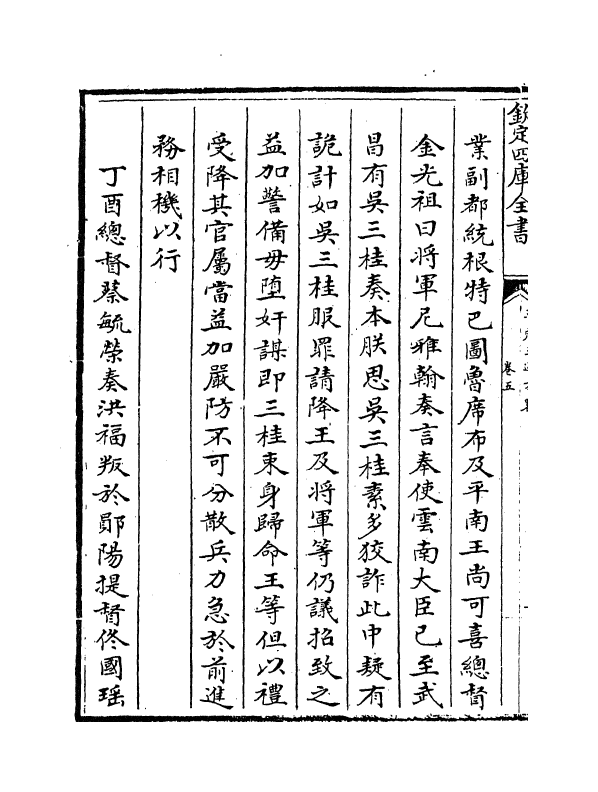 欽定四庫全書
卷五
業副都統根特巴圖魯席布及平南王尚可喜總督
金光祖曰將軍尼雅翰奏言奉使雲南大臣已至武
昌有吳三桂奏本朕思吳三桂素多狡詐此中疑有
詭計如吳三桂服罪請降王及將軍等仍議招致之
益加警備毋墮奸謀即三桂束身歸命王等但以禮
受降其官屬當益加嚴防不可分散兵力急於前進
務相機以行
丁酉總督蔡毓榮奏洪福叛於鄖陽提督佟國瑶